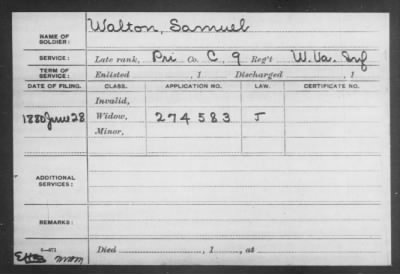 NAME OF SOLDIER: Walton, Samuel
SERVICE: Late rank, Pri Co. C, 9 Reg't W. Va. Inf
TERM OF SERVICE: Enlisted , 1 Discharged , 1
DATE OF FILING. CLASS. APPLICATION NO. LAW. CERTIFICATE NO.
Invalid,
1880 June 28 Widow, 274583 J
Minor,
ADDITIONAL SERVICES:
REMARKS:
Died , 1 , at